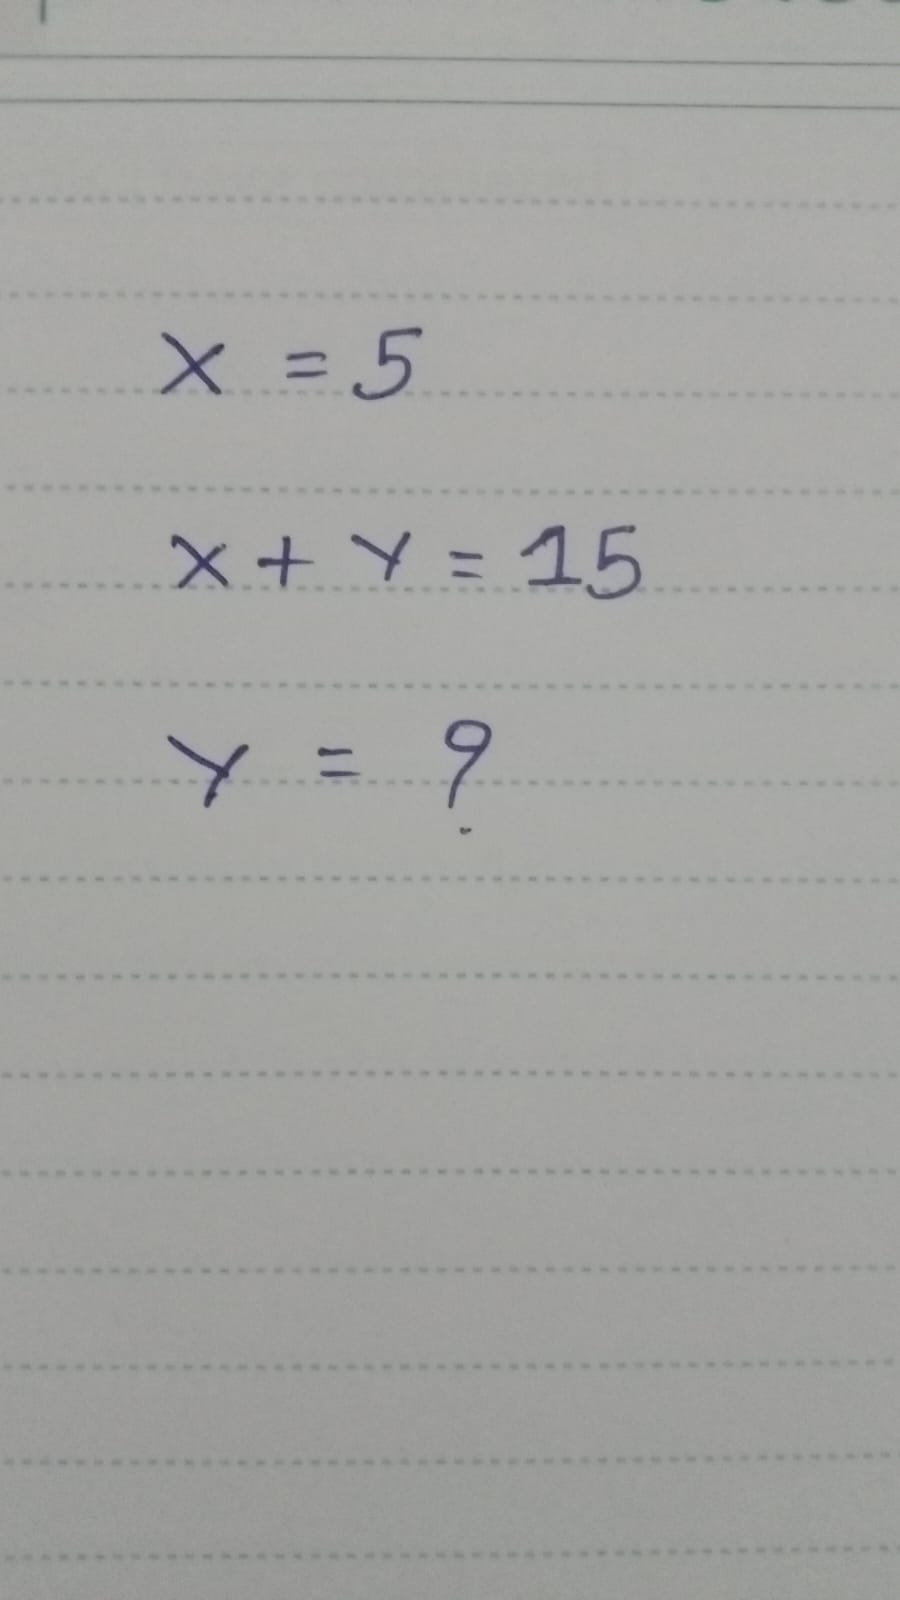 X = 5
X + Y = 15
Y = ?